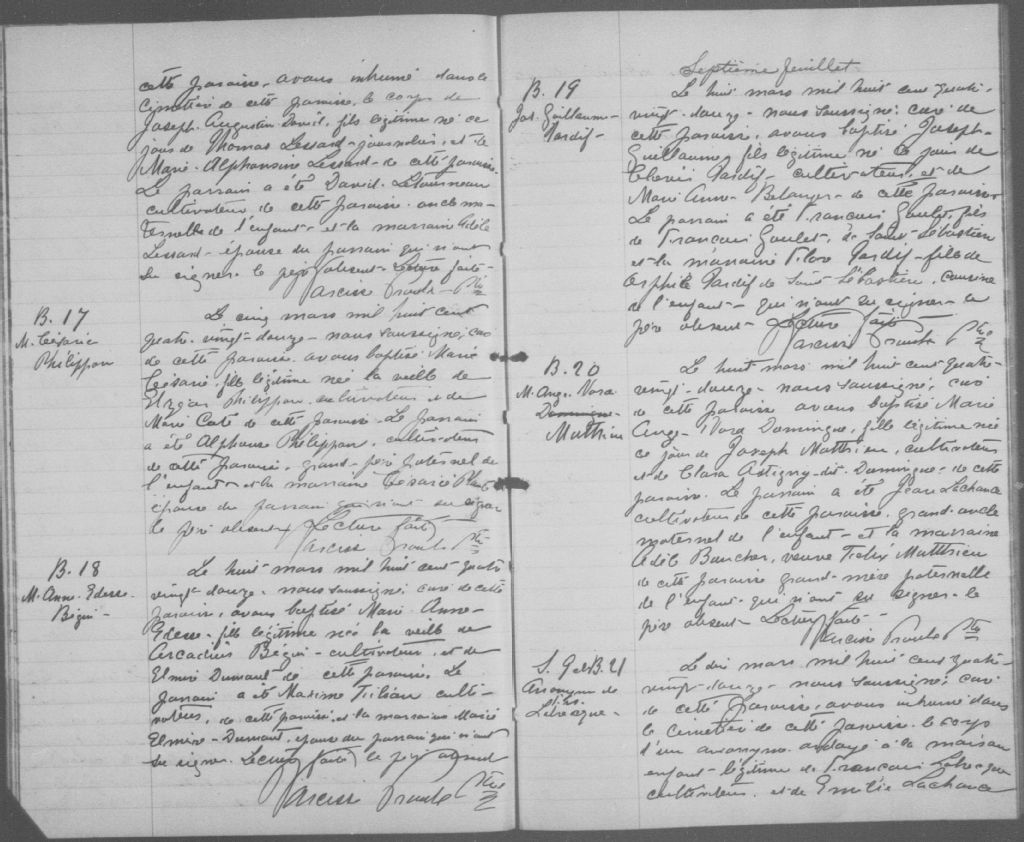 cette paroisse, avons inhumé dans le
cimetière de cette paroisse, le corps de
Joseph-Augustin David, fils légitime né ce
jour de Thomas Lessard, journalier, et de
Marie-Alphonsine Lessard de cette paroisse.
Le parrain a été David Létourneau
cultivateur de cette paroisse oncle ma-
ternelle de l'enfant et la marraine Adèle
Lessard épouse du parrain qui n'ont
su signer le père absent Lecture faite
Narcisse Proulx Ptre
B. 17
M. Césarie
Philippon
Le cinq mars mil huit cent
quatre-vingt-douze nous soussigné, curé
de cette paroisse avons baptisé Marie
Césarie, fille légitime née la veille de
Philippon, cultivateur et de
Marie Coté de cette paroisse Le parrain
a été Alphonse Philippon, cultivateur
de cette paroisse, grand-père paternel de
l'enfant et la marraine Césarie
épouse du parrain qui n'ont su signer
le père absent Lecture faite
Narcisse Proulx Ptre
B. 18
M. Anne-Edesse
Bégin
Le huit mars mil huit cent quatre
vingt-douze nous soussigné, curé de cette
paroisse, avons baptisé Marie-Anne-
Edesse fille légitime née la veille de
Arcadius Bégin cultivateur, et de
Elmire Dumont de cette paroisse, Le
parrain a été Maxime culti-
vateur, de cette paroisse, et la marraine Marie
Elmire Dumont, épouse du parrain qui n'ont
su signer. Lecture faite le père absent
Narcisse Proulx Ptre
Septième feuillet
B. 19
Jos. Guillaume
Tardif
Le huit mars mil huit cent quatre-
vingt-douze nous soussigné, curé de
cette paroisse, avons baptisé Joseph-
Guillaume, fils légitime né ce jour de
Tardif cultivateur, et de
Marie Anne Belanger de cette paroisse
Le parrain a été Francois Goulet, fils
de Francois Goulet, de Saint-Sébastien
et la marraine Flore Tardif fille de
Tardif de Saint-Sébastien, cousine
de l'enfant qui n'ont su signer le
père absent Lecture faite
Narcisse Proulx Ptre
B. 20
M. Ang. Nora
Domingue
Matthieu
Le huit mars mil huit cent quatre-
vingt-douze nous soussigné, curé
de cette paroisse avons baptisé Marie
Ange-Nora Domingue, fille légitime née
ce jour de Joseph Matthieu, cultivateur
et de Clara Astigny dit Domingue de cette
paroisse. Le parrain a été Jean Lachance
cultivateur de cette paroisse, grand-oncle
maternel de l'enfant et la marraine
Adèle Boucher, veuve Félix Matthieu
de cette paroisse grand-mère paternelle
de l'enfant qui n'ont su signer le
père absent Lecture faite
Narcisse Proulx Ptre
S. 9 et B. 21
Anonyme de
Frs.
Labrecque
Le dix mars mil huit cent quatre-
vingt-douze nous soussigné, curé
de cette paroisse, avons inhumé dans
le cimetière de cette paroisse le corps
d'un anonyme ondoyé à la maison
enfant légitime de Francois Labrecque
cultivateur, et de Emilie Lachance